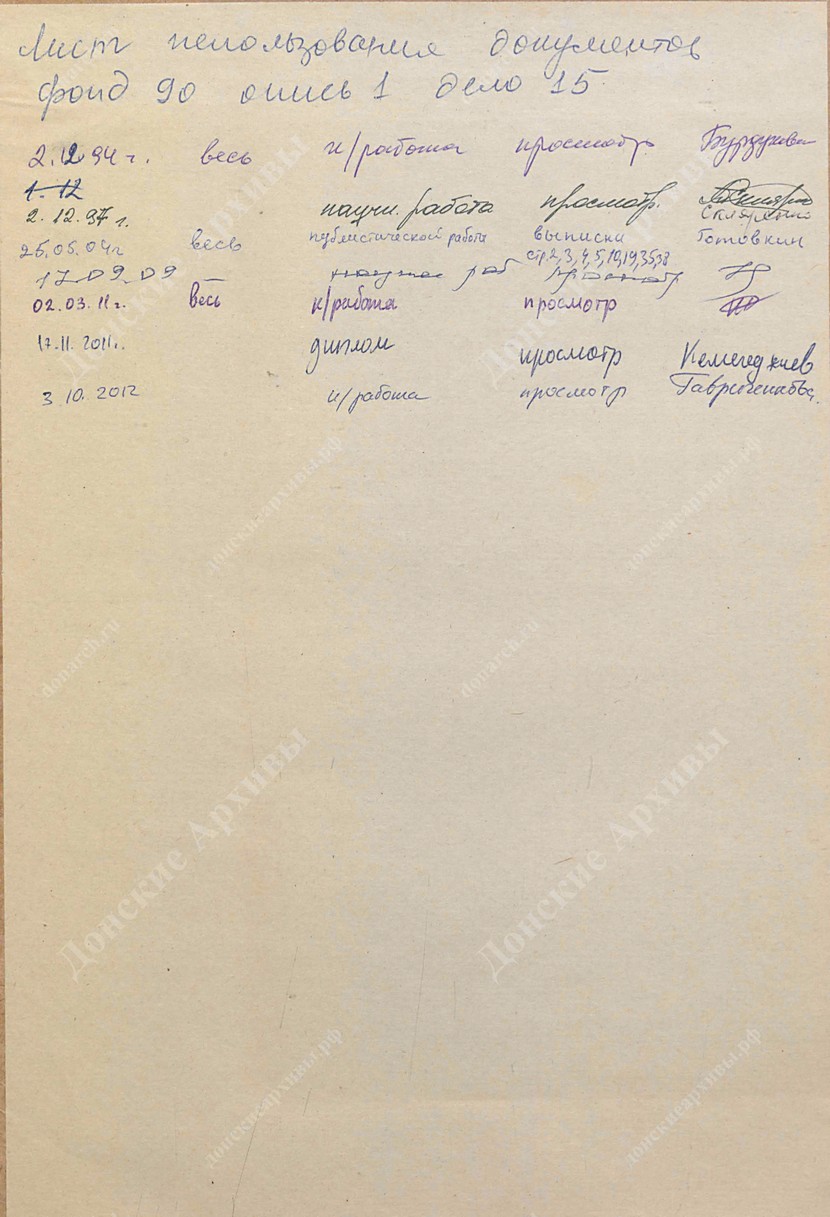 Лист использования документов
фонд 90 опись 1 дело 15
2.12.94 г. весь н/работа просмотр
1.12
2. 12. 97 г. научн. работа просмотр.
25.05.04г весь публистической работа выписки Готовкин
стр. 2, 3, 4, 5, 19, 19, 35, 38
17.09.09 – научная раб просмотр
02.03.11г. весь н/работа просмотр
17.11.2011г. диплом просмотр
3 10. 2012 н/работа просмотр
Донские Архивы
донскиеархивы.рф
donarch.ru